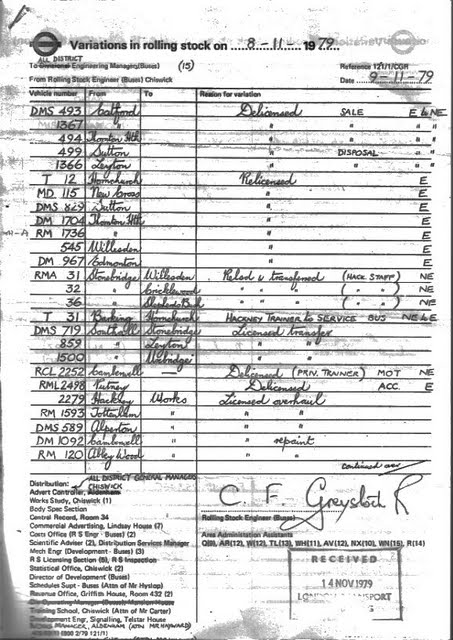 Variations in rolling stock on 8-11-1979.
ALL DISTRICT
To Divisional Engineering Managers (Buses) (15)
Reference 121/1/CGR
From Rolling Stock Engineer (Buses) Chiswick
Date 9-11-79
Vehicle number From To Reason for variation
DMS 493 Catford Delicensed SALE E & NE
1367 " " " "
494 Thornton Hth " " " "
499 Sutton " DISPOSAL " "
1366 Leyton " " " "
T 12 Hornchurch Relicensed E
MD 115 New Cross " E
DMS 829 Sutton " E
DM 1704 Thornton Hth " E
RM 1736 " " E
545 Willesden " E
DM 967 Edmonton " E
RMA 31 Stonebridge Willesden Relsd & transferred (HACK STAFF) NE
32 " Cricklewood " " " ( " ) NE
36 " Shepherds Bush " " " ( " ) NE
T 31 Barking Hornchurch HACKNEY TRAINER to SERVICE BUS NE & E
DMS 719 Southall Stonebridge Licensed transfer
859 " Leyton "
1500 " Uxbridge "
RCL 2252 Camberwell Delicensed (PRIV. TRAINER) MOT NE
RML 2498 Putney Delicensed ACC. E
2279 Hackney Works Licensed overhaul
RM 1593 Tottenham " " "
DMS 589 Alperton " " "
DM 1092 Camberwell " " repaint
RM 120 Abbey Wood " " "
continued over
Distribution: ALL DISTRICT GENERAL MANAGERS
CHISWICK
Advert Controller, Aldenham
Works Study, Chiswick (1)
Body Spec Section
Central Record, Room 34
Commercial Advertising, Lindsay House (7)
Costs Office (R S Engr - Buses) (2)
Scientific Adviser (2), Distribution Services Manager
Mech Engr (Development - Buses) (3)
R S Licensing Section (6), R S Inspection
Statistical Office, Chiswick (2)
Director of Development (Buses)
Schedules Supt - Buses (Attn of Mr Hyslop)
Revenue Office, Griffith House, Room 432 (2)
Training School, Chiswick (Attn of Mr Carter)
Development Engr, Signalling, Telstar House
MANAGER, ALDENHAM
C. F. Greystock R
Rolling Stock Engineer (Buses)
Area Administration Assistants
Q(8), AR(12), W(12), TL(13), WH(11), AV(12), NX(10), WN(15), R(14)
RECEIVED
14 NOV 1979
LONDON TRANSPORT